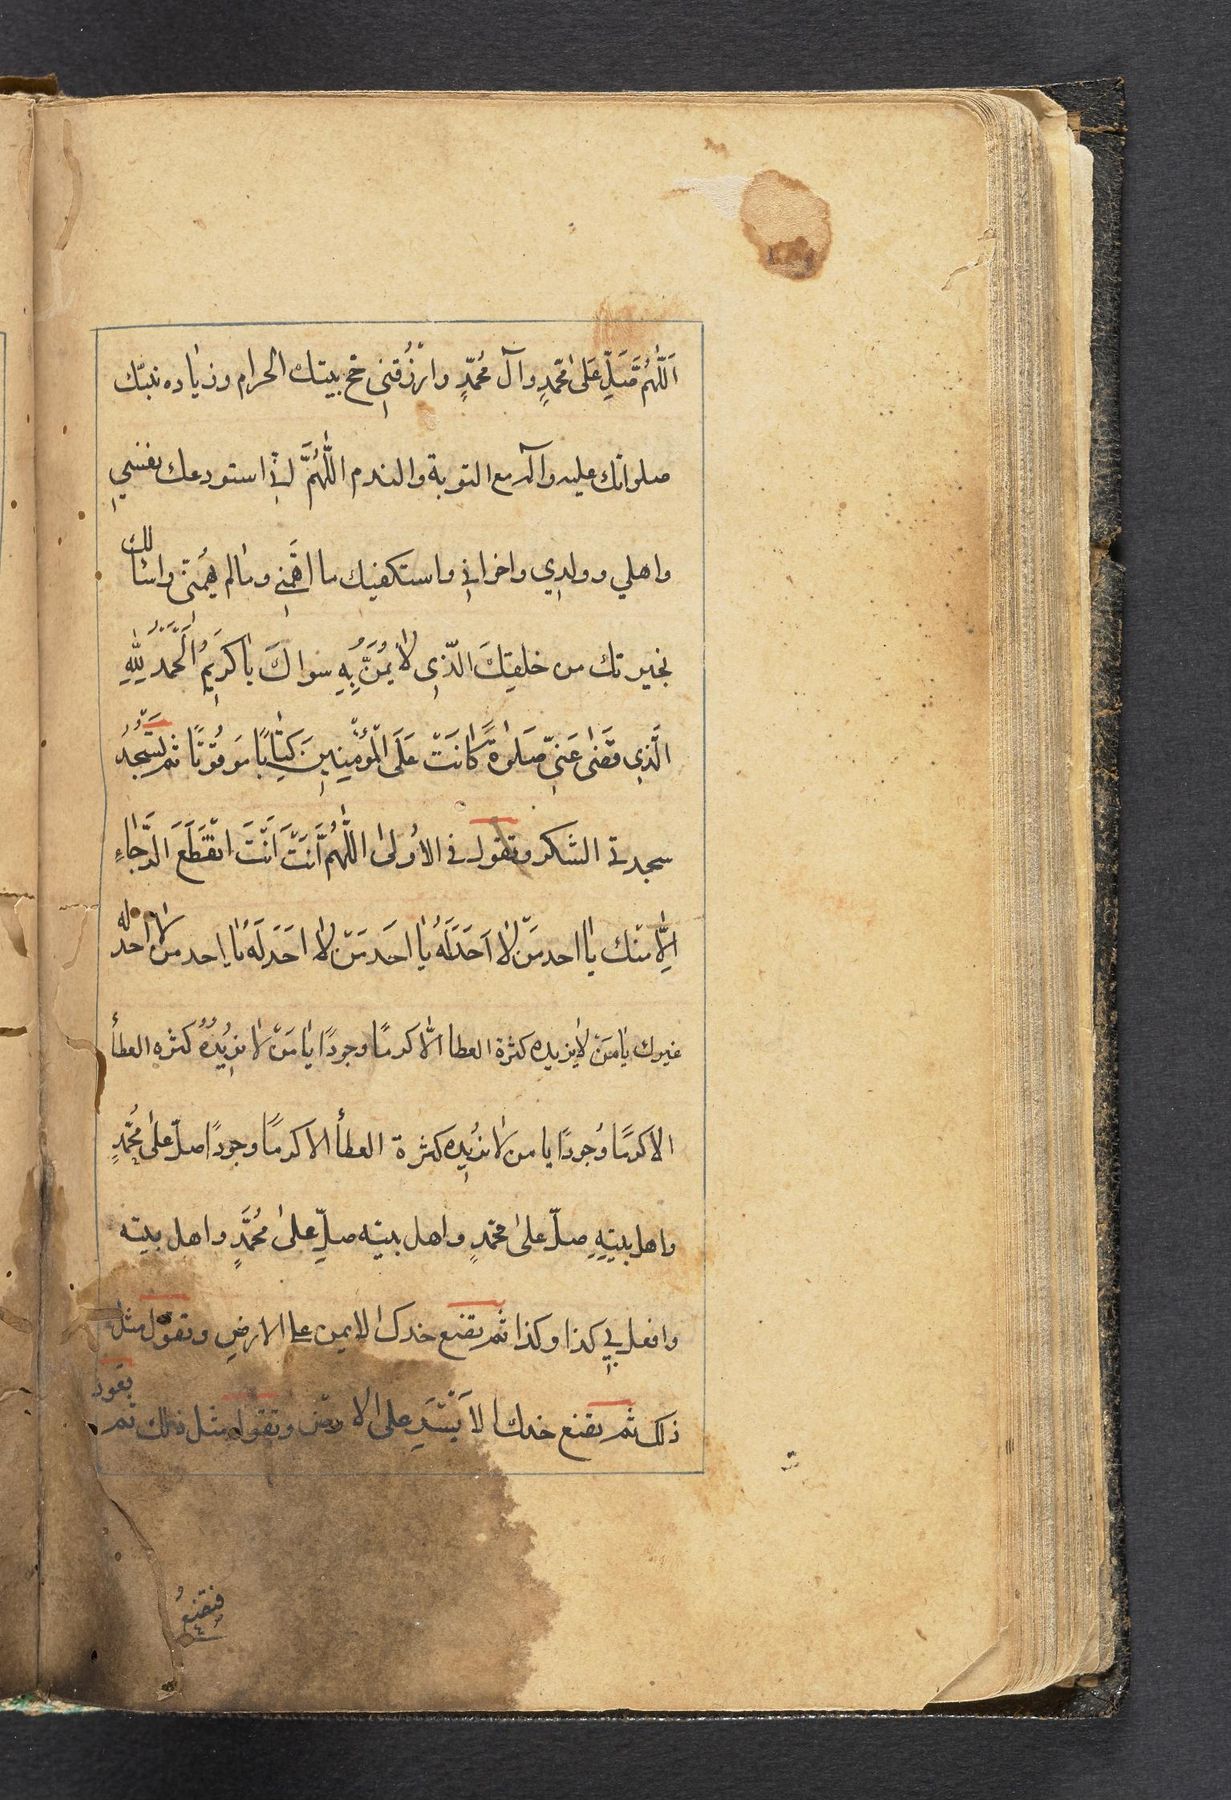 اَللّٰهُمَّ صَلِّ عَلىٰ مُحَمَّدٍ وآل مُحَمَّدٍ وارْزُقني حج بيتك الحرام وزياده نبيّك
صلواتك عليه وآله مع التوبة والندم اللّٰهُمَّ اِنّي استودعك نفسي
واهلي وولدي واخواني واستكفيك ما اهمَّني ومالم يُهمني واسالك
بخيرتك من خلقِكَ الّذي لا يَمُنُّ بِهِ سواكَ يا كَريمُ اَلْحَمْدُ لِلّٰهِ
الَّذِي قَضىٰ عَنِّي صَلوةً كانَتْ عَلَى الْمُؤْمِنِينَ كِتٰابًا مَوقُوتًا ثم تَسْجُدُ
سجدتي الشكر وتقول في الاُولىٰ اللّٰهُمَّ اَنْتَ اَنْتَ انْقَطَعَ الرَّجٰاءِ
اِلّا منك يا احد مَنْ لا اَحَدَ لَهُ يا احَد مَنْ لا احَدَ لَهُ يا احد من لا احد له
غيرك يا مَنْ لا يزيده كثرة العطا الّا كرمًا وجودًا يا مَنْ لا يزيدُهُ كثره العطأ
الا كرمًا وجودًا يا من لا يزيده كثرة العطأ الا كرمًا وجودًا صلّ على مُحَمَّدٍ
واهل بيتِهِ صلّ علىٰ محمّدٍ واهل بيته صلِّ علىٰ مُحَمَّدٍ واهل بيته
وافعل بي كذا وكذا ثم تضع خدك الايمن على الارض وتقول مثل
ذلك ثم تضع خدك الاَيْسَرِ على الارض وتقول مثل ذلك ثم تعود
فتضع